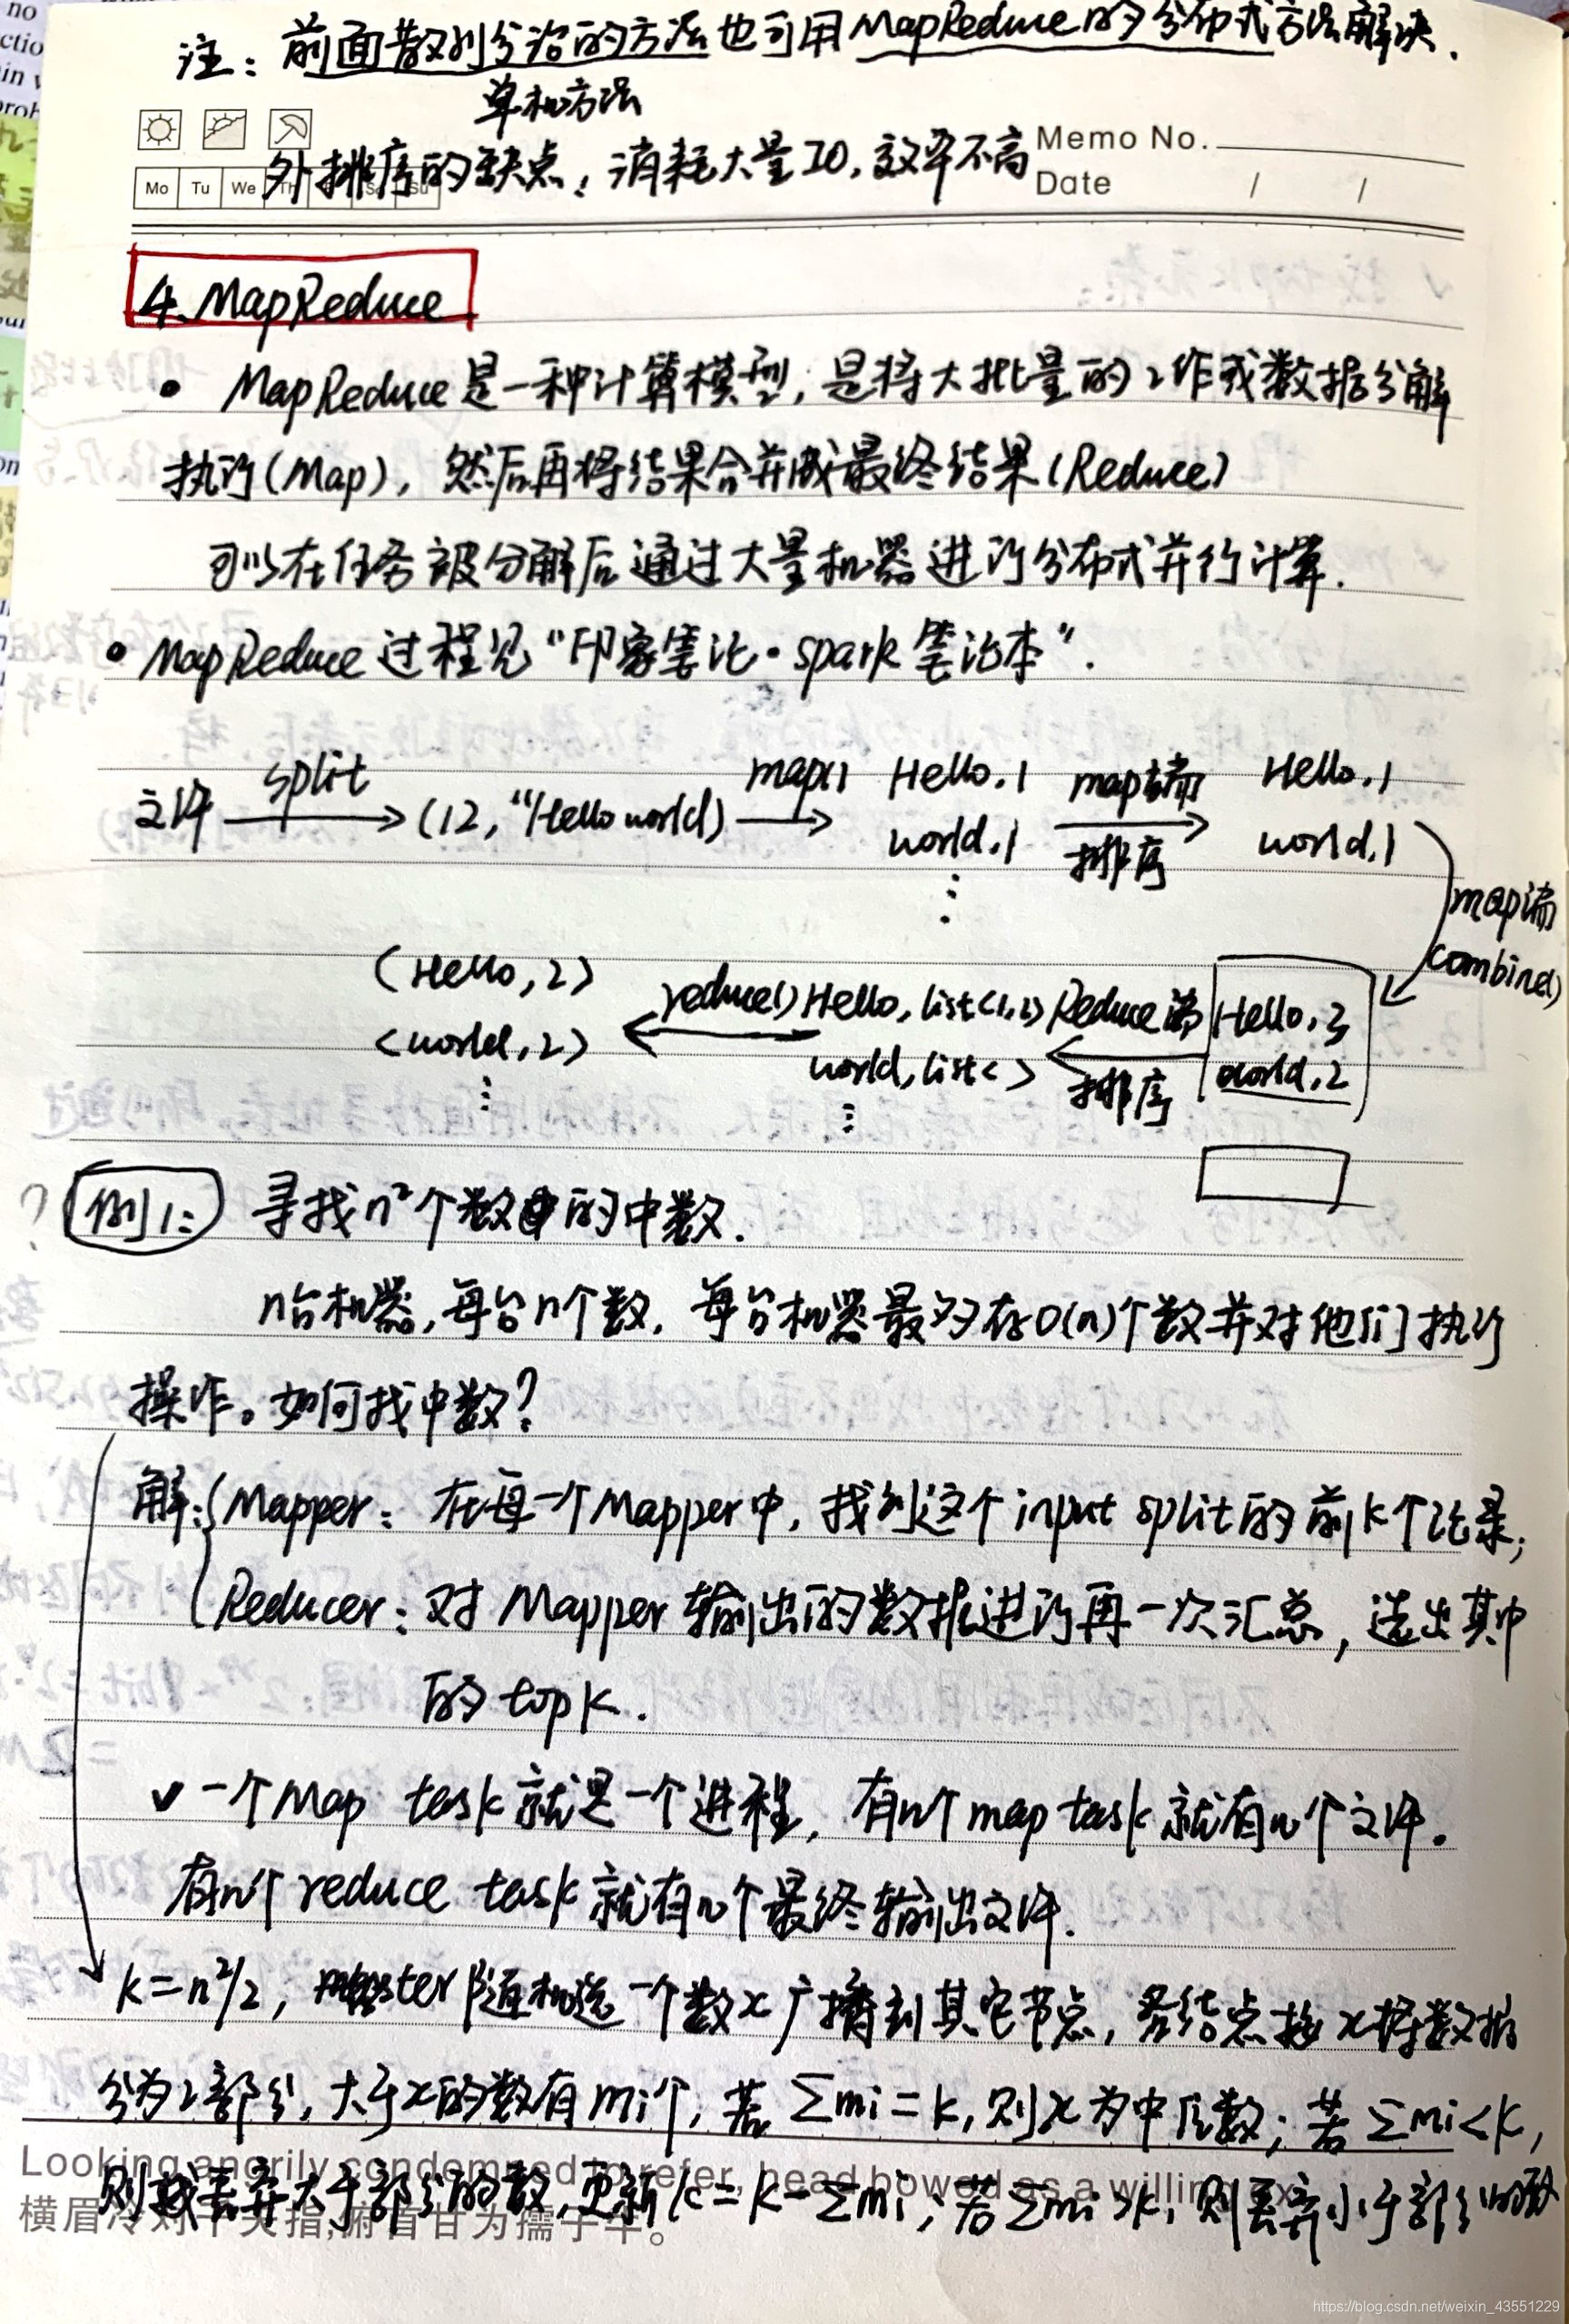 注：前面散列分治的方法也可用MapReduce的分布式方法解决.
单机方法
外排序的缺点：消耗大量IO，效率不高
Memo No.
Mo Tu We Th Su
Date / /
4、MapReduce
• MapReduce是一种计算模型，是将大批量的工作或数据分解
执行(Map)，然后再将结果合并成最终结果(Reduce)
可以在任务被分解后通过大量机器进行分布式并行计算.
• MapReduce过程见“印象笔记·spark笔记本”.
文件 split → (12, “Hello world) map() → Hello,1 map端 → Hello,1
world,1 排序 world,1
⋮
map端
combine()
(Hello,2) reduce() ← Hello,list<1,2> Reduce端 ← Hello,3
<world,2> world,list< > 排序 world,2
⋮ ⋮
? 例1: 寻找n²个数中的中数.
n台机器,每台n个数，每台机器最多存O(n)个数并对他们执行
操作。如何找中数?
解:{Mapper: 在每一个Mapper中，找到这个input split的前k个记录;
Reducer: 对Mapper输出的数据进行再一次汇总，选出其中
的top k.
✓ 一个Map task就是一个进程，有n个map task就有n个文件.
有n个reduce task就有n个最终输出文件.
k=n²/2, master随机选一个数x广播到其它节点，各结点按x将数据
分为2部分，大于x的数有mi个，若 Σmi=k,则x为中位数；若Σmi<k,
Looking angrily condemned to refer, head bowed as a willing ox
则丢弃大于部分的数,更新k=k-Σmi；若Σmi>k，则丢弃小于部分的数
横眉冷对千夫指,俯首甘为孺子牛。
https://blog.csdn.net/weixin_43551229